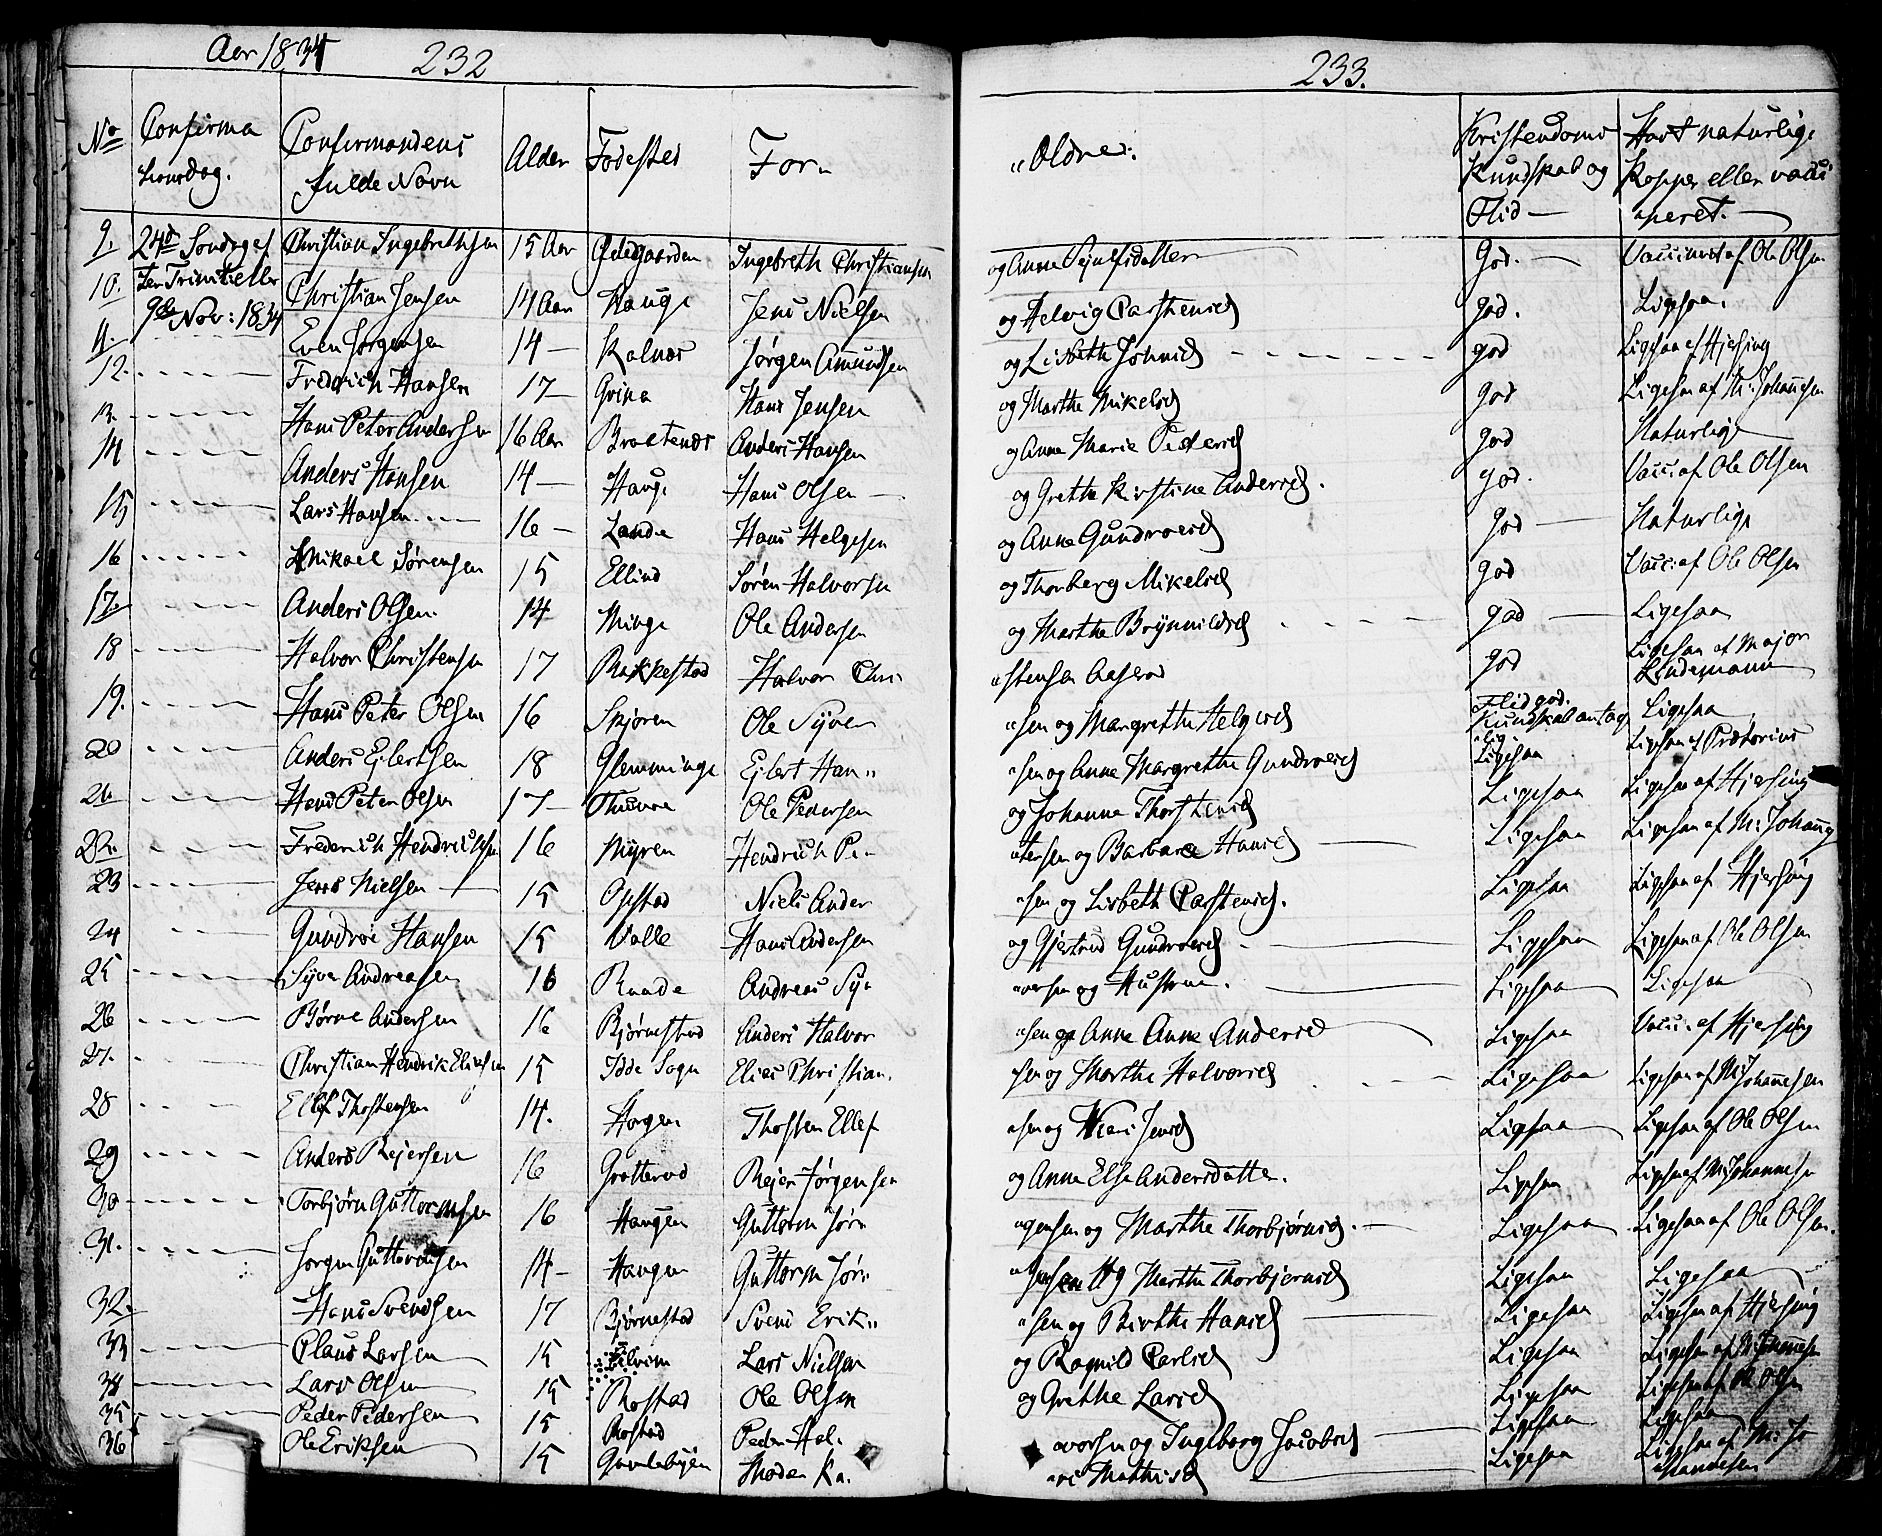 Aar 1834 232
233.
No Confirma Confirmandens Alder Fødested For- "Ældre: Kristendoms Havt naturlige
tionsdag. fulde Navn Kundskab og Kopper eller vacci
Flid — "neret. —
9. 24de Søndag ef Christian Ingebrethsen 15 Aar Ødegaarden Ingebreth Christiansen og Anne Ejnlfsdatter God. — Vaccineret af Ole Olsen
10. ter Trinitatis Christian Jensen 14 Aar Hauge Jens Nielsen og Helvig Carstensd god. Ligesaa.
9de Nov: 1834
11. Even Jørgensen 14 — Kalnæs Jørgen Amundsen og Lisbeth Johnsd god Ligesaa af Hjersing
12. Frederich Hansen 17 — Grina Hans Jensen og Marthe Mikelsd god Ligesaa af M: Johannesen
13. Hans Peter Andersen 16 Aar Braatenæs Anders Hansen og Anne Marie Pedersd god Naturlige
14 Anders Hansen 14 — Hauge Hans Olsen — og Grethe Kirstine Andersd. god. Vacc: af Ole Olsen
15 Lars Hansen 16 — Lande Hans Helgesen og Anne Gundroesd god — Naturlige
16 Mikael Sørensen 15 Ellind Søren Halvorsen og Thorberg Mikelsd god Vacc: af Ole Olsen
17. Anders Olsen. 14 Minge Ole Andersen og Marthe Brynnildsd god — Ligesaa
18 Halvor Christensen 17 Rakkestad Halvor Chri "stensen Aaserød god Ligesaa af Major Lindemann
19. Hans Peter Olsen 16 Skjøren Ole Syver "sen og Margrethe Helgesd Flid god. Kundskab antag "elig Ligesaa
20 Anders Ejlertsen 18 Glemminge Ejlert Han" "sen og Anne Margrethe Gundroesd Ligesaa Ligesaa af Prætorius
21 Hans Peter Olsen 17 — Thune Ole Pedersen og Johanne Thorstensd Ligesaa Ligesaa af Hjersing
22. Frederich Hendrichsen 16 Myren Hendrich Pe- "tersen og Barbara Hansd — Ligesaa Ligesaa af M: Johanne
23 Jens Nielsen — 15 Opstad Niels Ander "sen og Lisbeth Carstensd. Ligesaa Ligesaa af Hjersing
24 Gundroe Hansen 15 Valle Hans Andersen og Gjertrud Gundroesd Ligesaa Ligesaa af Ole Olsen
25 Syver Andreasen 16 Raade Andreas Sy- "versen og Hustrue. Ligesaa Ligesaa
26 Børne Andersen 16 Bjørnestad Anders Halvor "sen og Anne Anne Andersd Ligesaa Vacc: af Hjersing
27. Christian Hendrik Eliesen 15 Idde Sogn Elies Christian. "sen og Marthe Halvorsd Ligesaa Ligesaa af M: Johannesen
28 Ellef Thostensen 14. Hagen Thosten Ellef "sen og Jensd Ligesaa Ligesaa af Ole Olsen
29 Anders Rejersen 16 Grøtterød Rejer Jørgensen og Anne Else Andersdatte. Ligesaa Ligesaa af M: Johannesen
30 Torbjørn Guttormsen 16 Haugen Guttorm Jør" "gensen og Marthe Thorbjørnsd. — Ligesaa Ligesaa af Ole Olsen.
31. Jørgen Guttormsen 14 — Haugen Guttorm Jør" "gensen og Marthe Thorbjernsd Ligesaa Ligesaa
32. Hans Svendsen 17 Bjørnestad Svend Erik" "sen og Birthe Hansd Ligesaa Ligesaa af Hjersing
33 Claus Larsen 15 Lars Nielsen og Ragnild Carlsd Ligesaa Ligesaa af M: Johannesen
34 Lars Olsen 15 Rostad Ole Olsen og Grethe Larsd Ligesaa Ligesaa af Ole Olsen
35 Peder Pedersen 15 Rostad Peder Hal. "vorsen og Ingeborg Jacobsd Ligesaa Ligesaa
36 Ole Eriksen 15 Gamlebyen Moder Ka. "ri Mathisd Ligesaa Ligesaa af M: Jo "hannesen